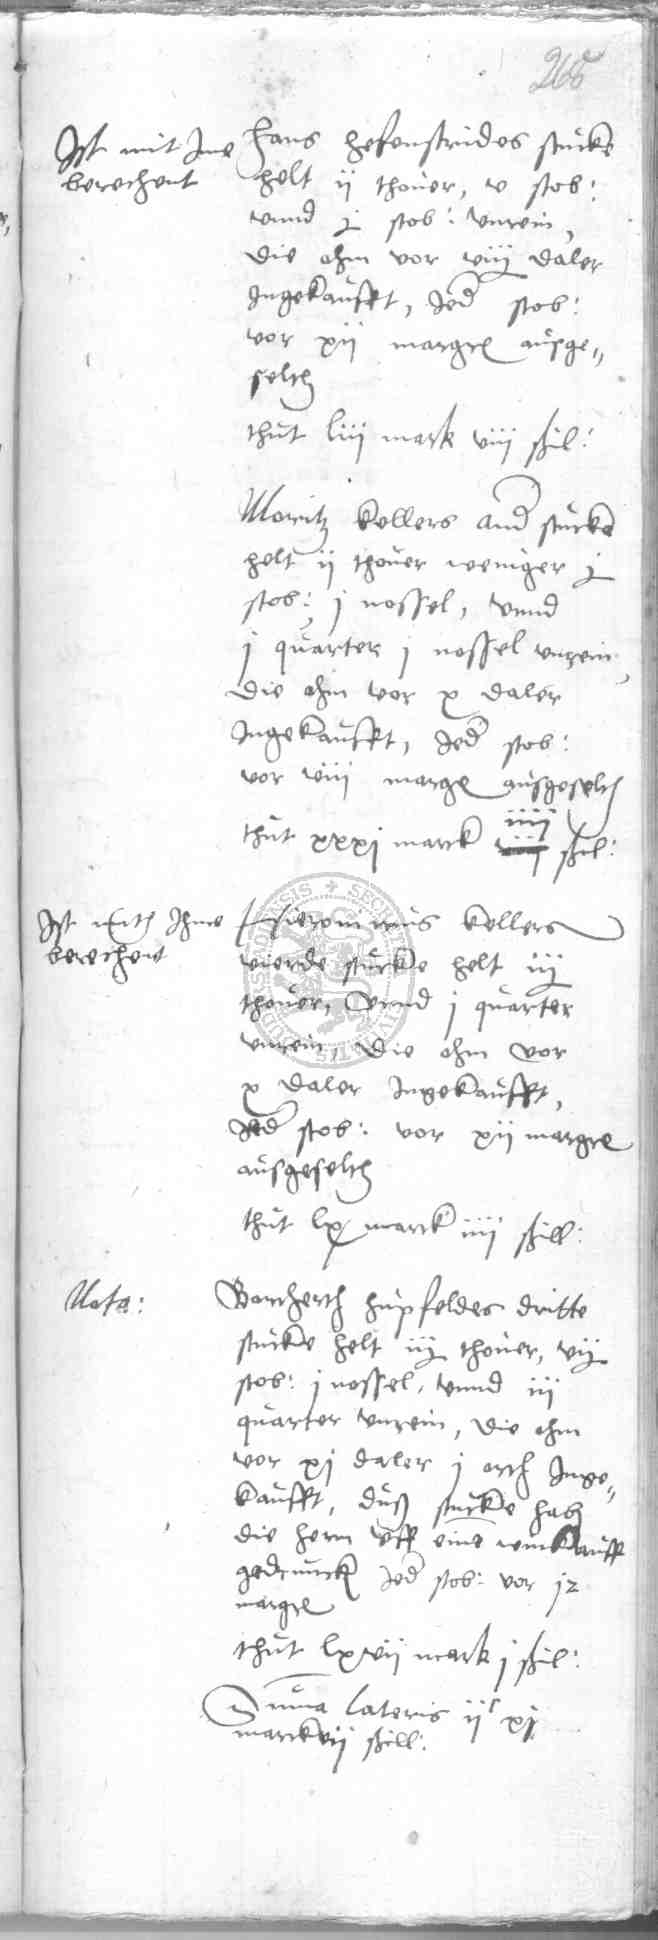 265
Ist mit Ime
berechent
Hans Hefenstrides stucke
helt ij thouer, v stob:
vnnd j stob: vnrein,
die ohm vor viij daler
Ingekaufft, Jed stob:
vor xij margr ausge„
selth
thut liij mark viij ßil:
Moritz Kellers and stucke
helt ij thouer weniger j
stob: j nossel, vnnd
j quarter j nossel vnrein,
die ohm vor x daler
Ingekaufft, Jed stob:
vor viij margr ausgeselth
thut xxxj marck iiij ßil:
Ist mith Ihme
berechent
Hieronimus Kellers
vierde stucke helt iij
thouer, vnnd j quarter
vnrein, die ohm vor
x daler Ingekaufft,
Jed stob: vor xij margr
ausgeselth
thut lx marck iiij ßill:
Nota:
Borcherth Hupfeldes dritte
stucke helt iij thouer, vij
stob: j nossel, vnnd iij
quarter vnrein, die ohm
vor xj daler j orth Inge„
kaufft, duß stucke hab
die hern vff eine winkauff
gedruncke Jed stob: vor 12
margr
thut lxvij mark j ßil:
Suma lateris ijc xj
marck vij ßill: